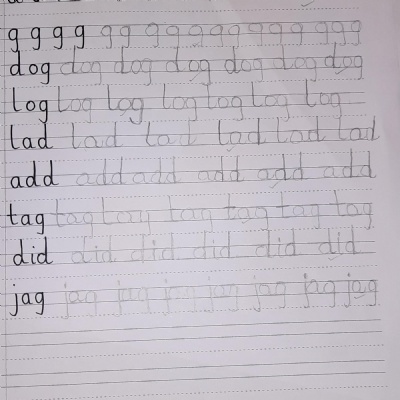 g g g g g g g g g g g g g g g g
dog dog dog dog dog dog dog
log log log log log log log
lad lad lad lad lad lad
add add add add add add
tag tag tag tag tag tag tag
did did did did did did
jag jag jag jag jag jag jag jag